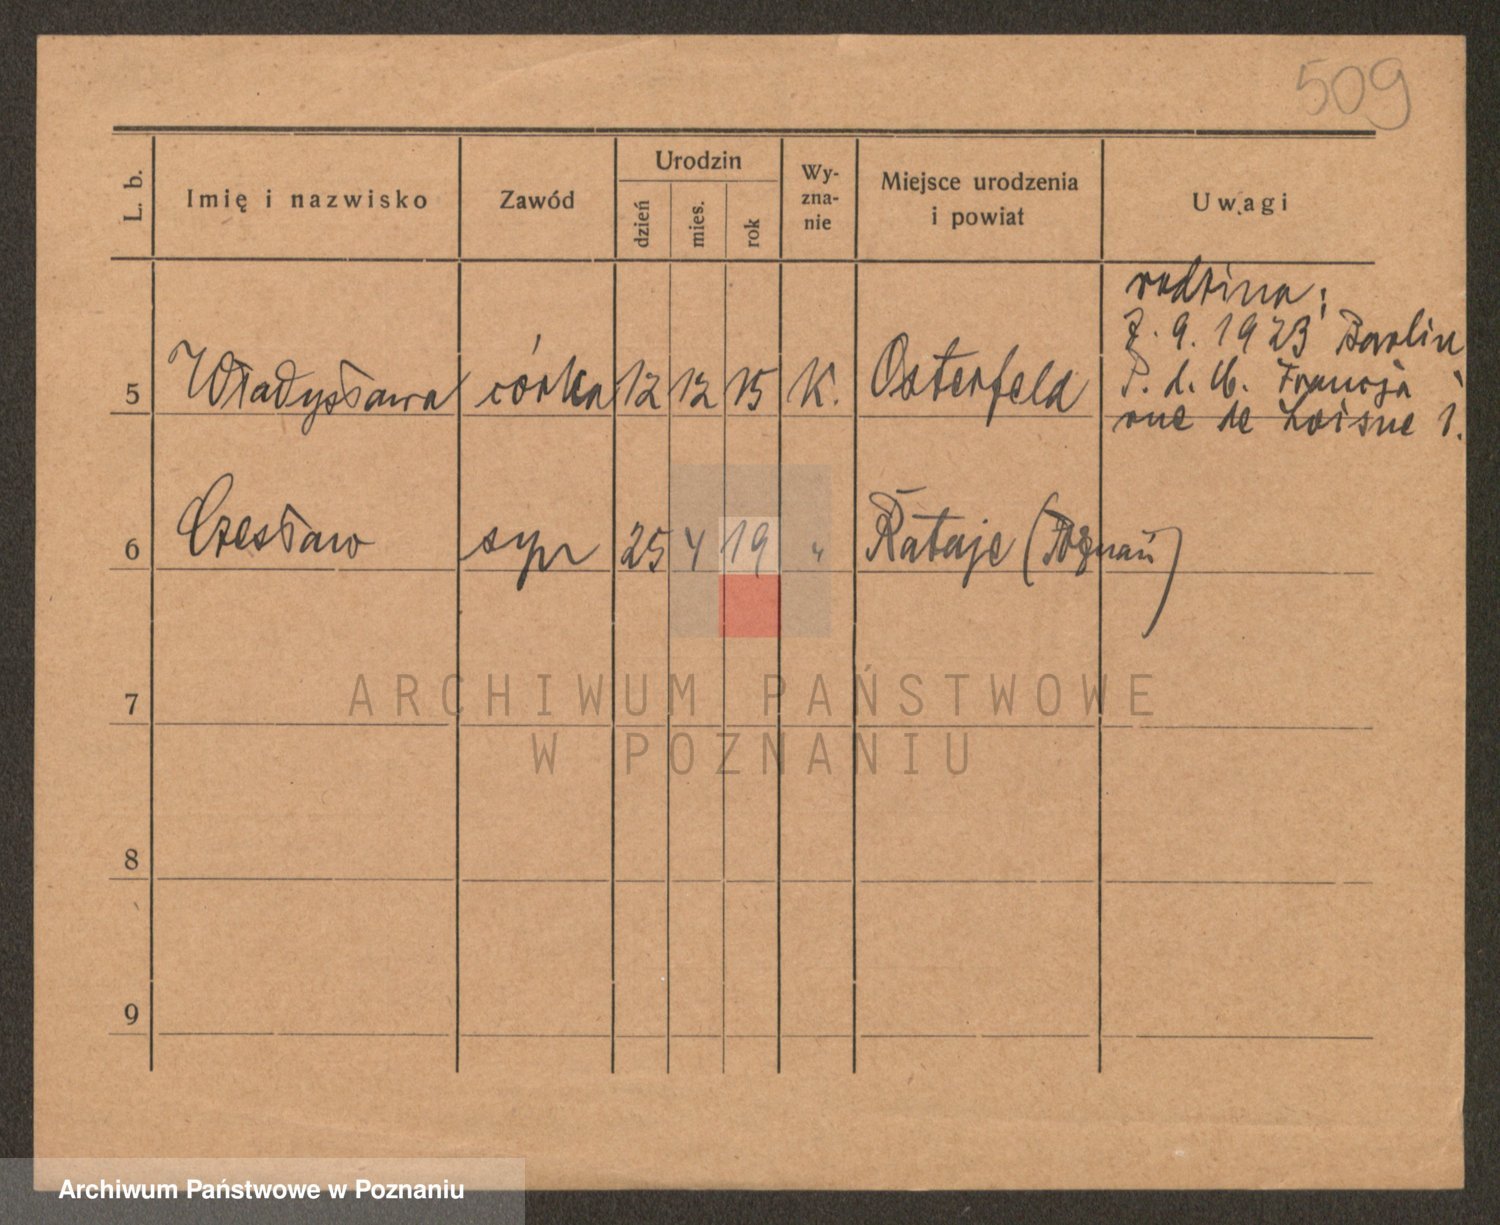 509
L. b.
Imię i nazwisko
Zawód
Urodzin
dzień
mies.
rok
Wy-
zna-
nie
Miejsce urodzenia
i powiat
Uwagi
rodzina:
7. 9. 1923 Barlin
P. d. C. Francja
rue de Loisne 1.
5 Władysława córka 12 12 15 K. Osterfeld
6 Czesław syn 25 4 19 " Rataje (Poznań)
7
8
9
ARCHIWUM PAŃSTWOWE
W POZNANIU
Archiwum Państwowe w Poznaniu